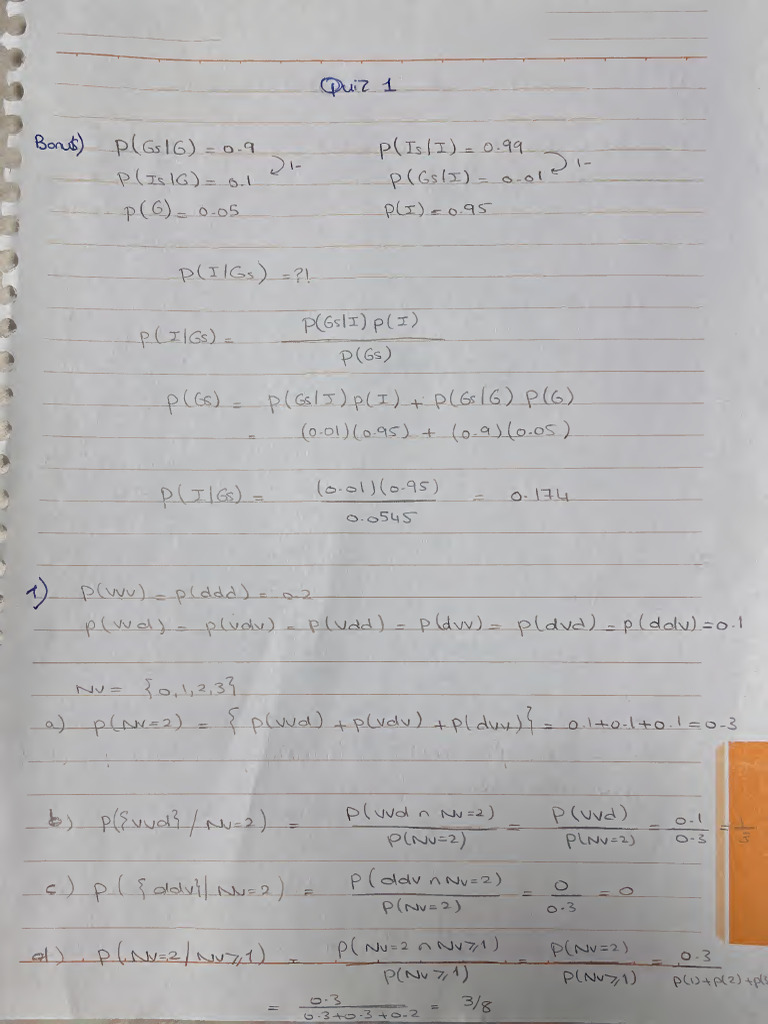 Quiz 1
Bonus) P(Gs|G) = 0.9 P(Is|I) = 0.99
P(Is|G) = 0.1 1- P(Gs|I) = 0.01 1-
P(G) = 0.05 P(I) = 0.95
P(I|Gs) = ?!
P(I|Gs) = P(Gs|I) P(I) / P(Gs)
P(Gs) = P(Gs|I) P(I) + P(Gs|G) P(G)
= (0.01)(0.95) + (0.9)(0.05)
P(I|Gs) = (0.01)(0.95) / 0.0545 = 0.174
1) P(vvv) = P(ddd) = 0.2
P(vvd) = P(vdv) = P(vdd) = P(dvv) = P(dvd) = P(ddv) = 0.1
Nv = {0,1,2,3}
a) P(Nv=2) = { P(vvd) + P(vdv) + P(dvv)} = 0.1+0.1+0.1 = 0.3
b) P({vvd} / Nv=2) = P(vvd ∩ Nv=2) / P(Nv=2) = P(vvd) / P(Nv=2) = 0.1 / 0.3 = 1/3
c) P({ddv}| Nv=2) = P(ddv ∩ Nv=2) / P(Nv=2) = 0 / 0.3 = 0
d) P(Nv=2 / Nv≥1) = P(Nv=2 ∩ Nv≥1) / P(Nv≥1) = P(Nv=2) / P(Nv≥1) = 0.3 / P(1)+P(2)+
= 0.3 / 0.3+0.3+0.2 = 3/8